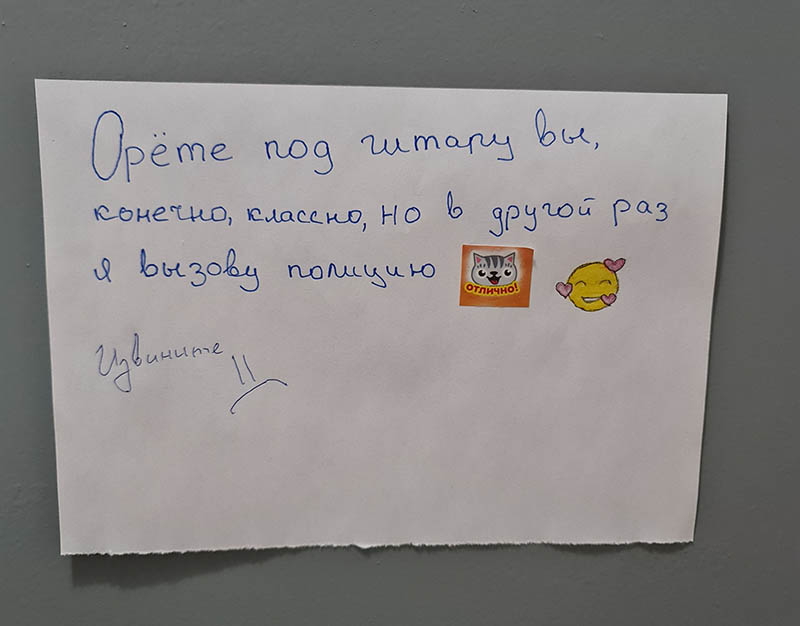 Орёте под гитару вы,
конечно, классно, но в другой раз
я вызову полицию
ОТЛИЧНО!
Извините